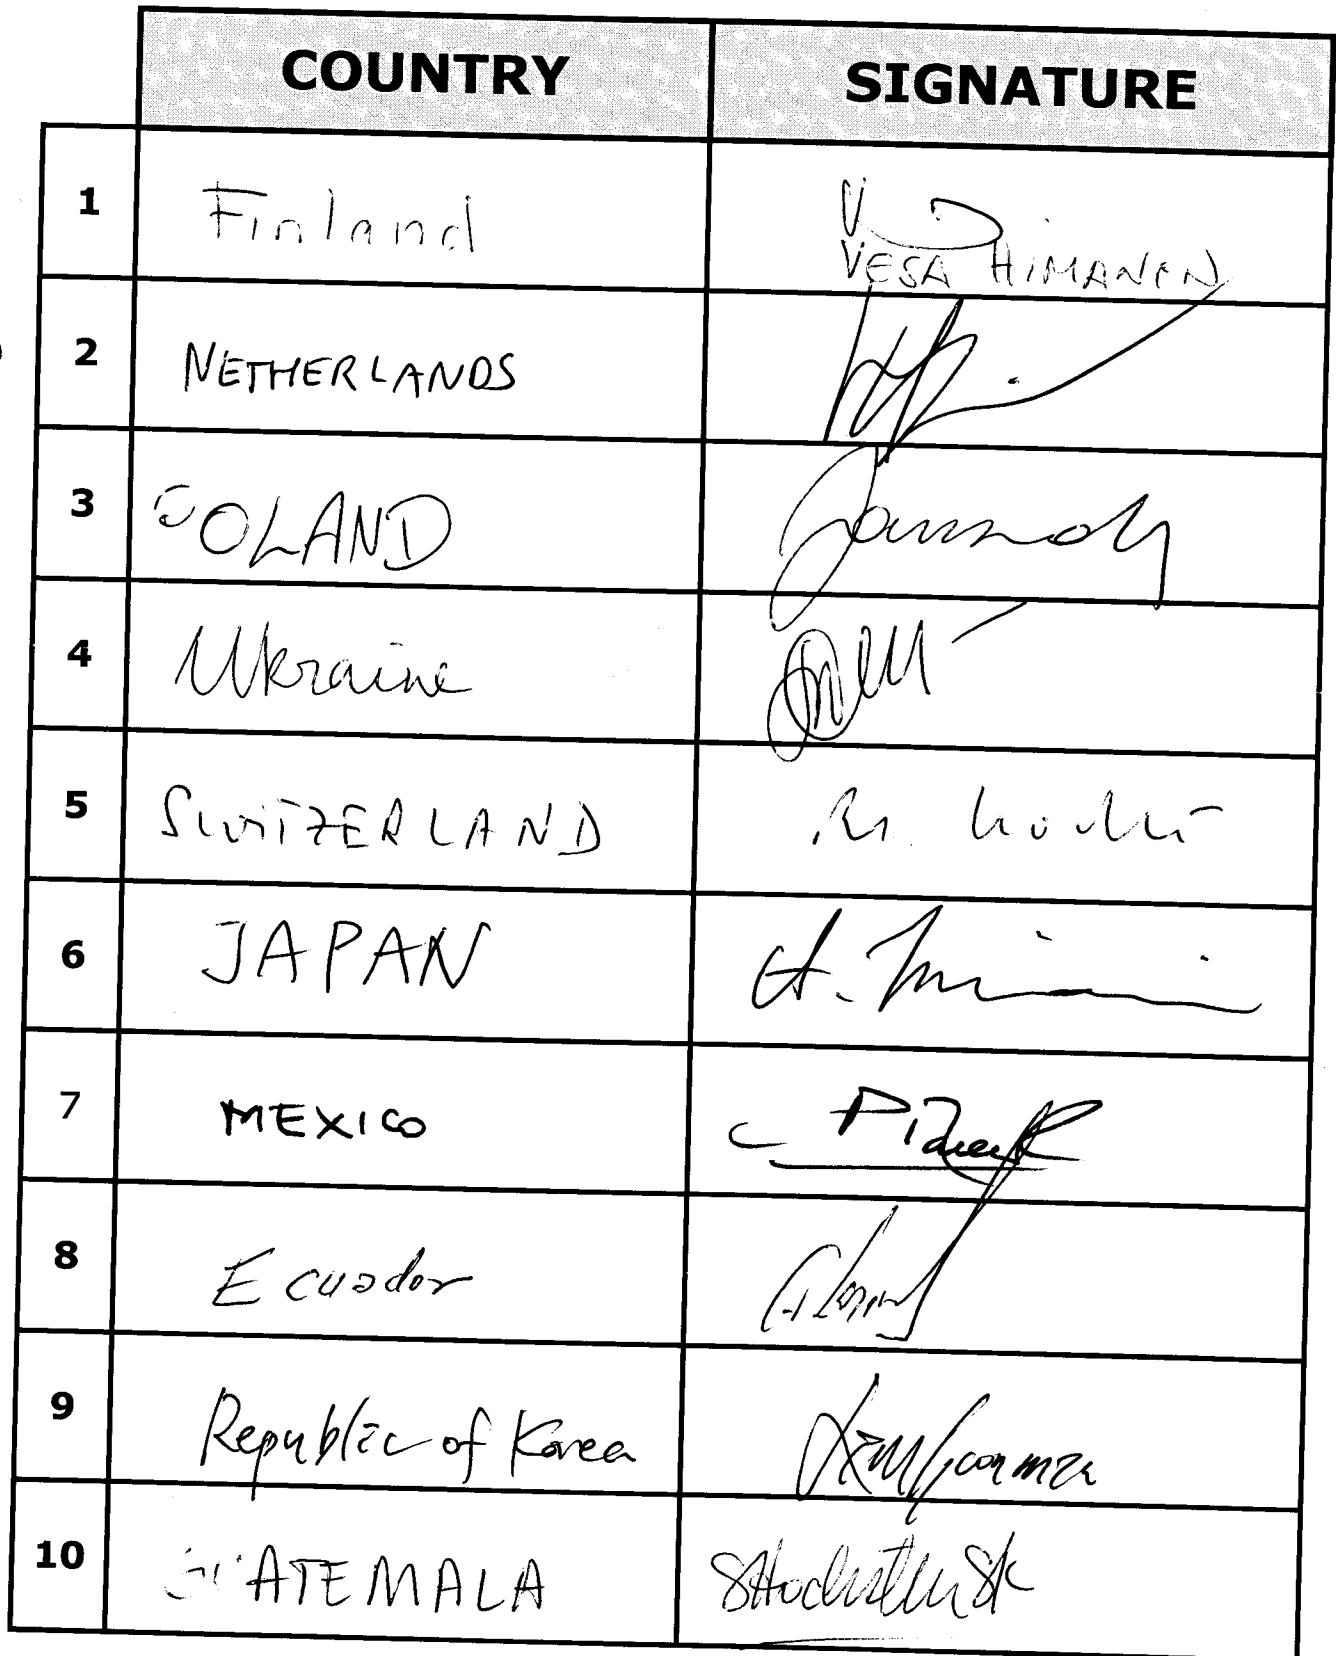 COUNTRY SIGNATURE
1 Finland
VESA HIMANEN
2 NETHERLANDS
3 POLAND
4 Ukraine
5 SWITZERLAND
6 JAPAN
7 MEXICO
8 Ecuador
9 Republic of Korea
10 GUATEMALA